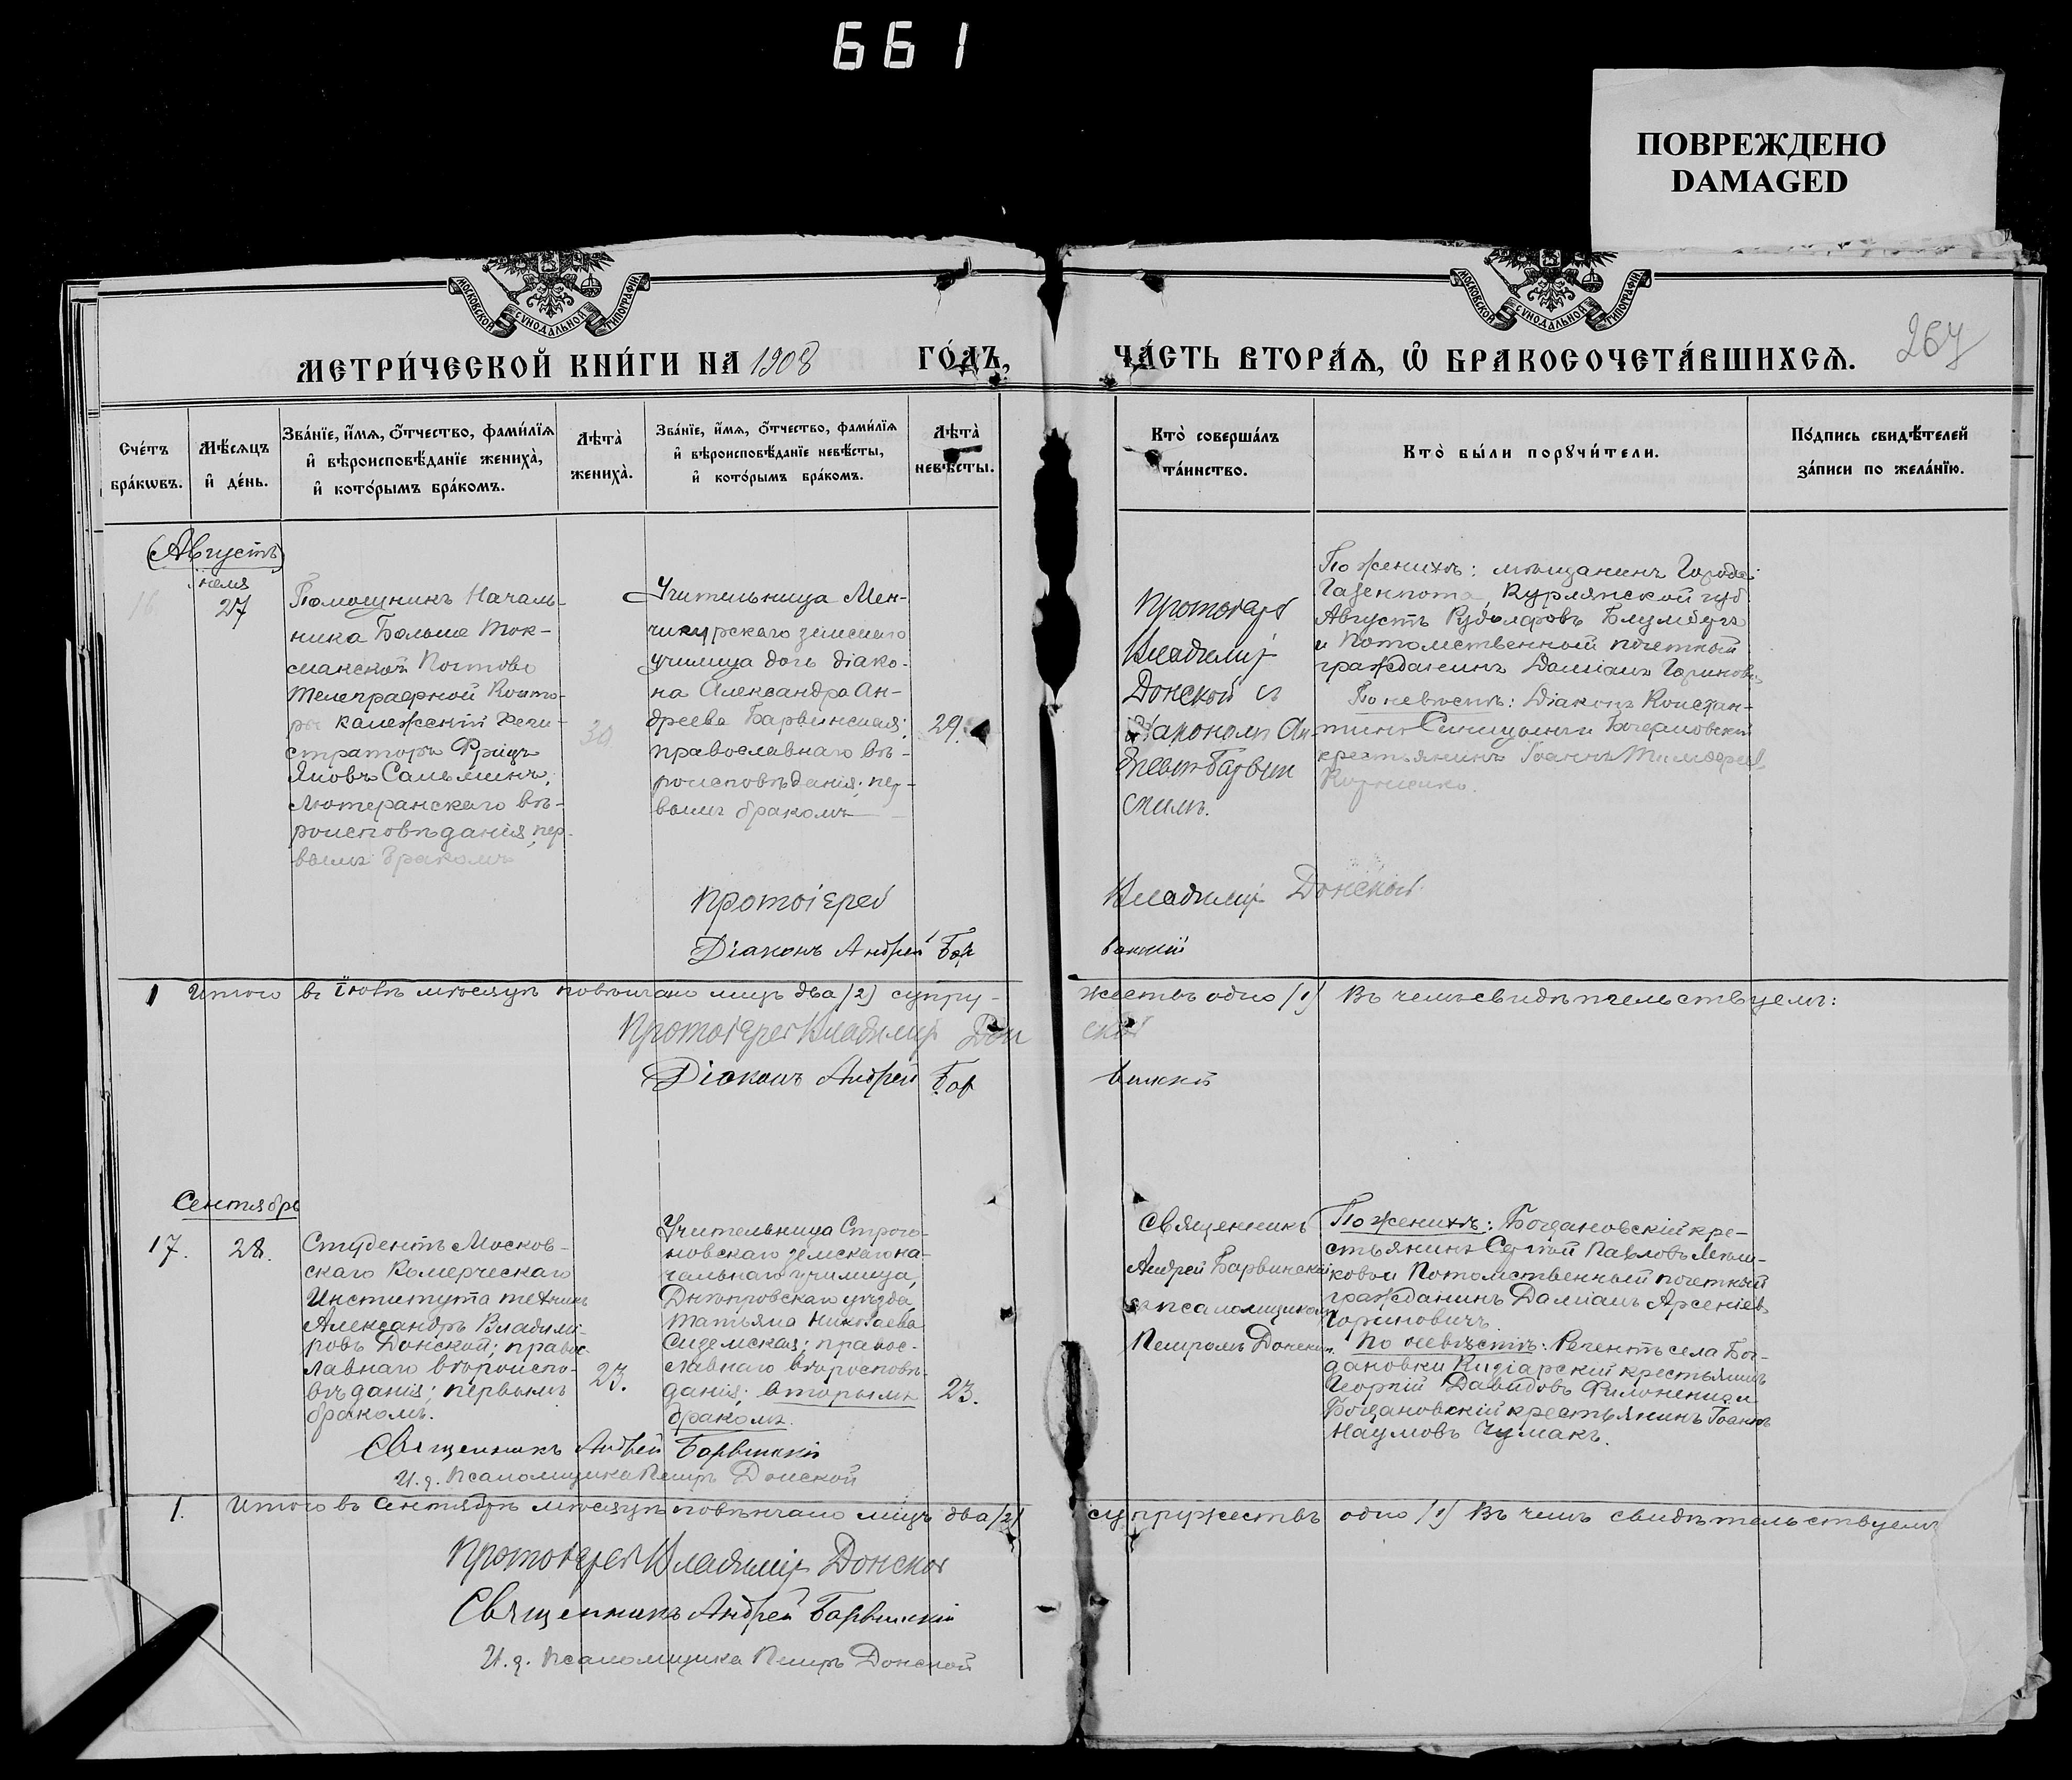 661
ПОВРЕЖДЕНО
DAMAGED
МОСКОВСКОЙ СУНОДАЛЬНОЙ ТИПОГРАФІИ
МОСКОВСКОЙ СУНОДАЛЬНОЙ ТИПОГРАФІИ
МЕТРИ́ЧЕСКОЙ КНИ́ГИ НА 1908 ГО́ДЪ,
ЧА́СТЬ ВТОРА́Я, Ѽ БРАКОСОЧЕТА́ВШИХСЯ.
267
Сче́тъ
бра́кѡвъ.
Мѣ́сяцъ
и҆ де́нь.
Зва́нїе, и҆́мя, ѻ҆́тчество, фами́лїя
и҆ вѣроисповѣ́данїе жениха̀,
и҆ кото́рымъ бра́комъ.
Лѣта̀
жениха̀.
Зва́нїе, и҆́мя, ѻ҆́тчество, фами́лїя
и҆ вѣроисповѣ́данїе невѣ́сты,
и҆ кото́рымъ бра́комъ.
Лѣта̀
невѣ́сты.
Кто̀ соверша́лъ
та́инство.
Кто̀ бы́ли порꙋчи́тели.
По́дпись свидѣ́телей
за́писи по жела́нїю.
(Августъ)
27
Помощникъ Началь-
ника Больше Ток-
макской Почтово
Телеграфной Конто-
ры коллежскій Реги-
страторъ Фрицъ
Яновъ Сальминъ,
Лютеранскаго вѣ-
роисповѣданія, пер-
вымъ бракомъ
30
Учительница Мен-
чикурскаго земскаго
училища дочь діако-
на Александра Ан-
дреева Барвинская;
православнаго вѣ-
роисповѣданія; пер-
вымъ бракомъ
29.
Протоіерей
Владиміръ
Донской съ
діакономъ Ан-
дреемъ Барвин
скимъ.
По женихѣ: мѣщанинъ Города
Газенпота, Курляндской губ.
Августъ Рудольфовъ Блумбергъ
и Потомственный почетный
гражданинъ Даміанъ Гориновичъ
По невѣстѣ: Діаконъ Констан-
тинъ Синицынъ и
крестьянинъ Іоаннъ Тимофеевъ
Протоіерей Владиміръ Донской.
Діаконъ Андрей Барвинскій
1 Итого въ Іюлѣ мѣсяцѣ повѣнчано лицъ два (2) супру-
жествъ одно (1) Въ чемъ свидѣтельствуемъ:
Протоіерей Владиміръ Донской
Діаконъ Андрей Барвинскій
Сентябрь
17.
28.
Студентъ Москов-
скаго Комерческаго
Института техникъ
Александръ Владимі-
ровъ Донской; правос-
лавнаго вѣроиспо-
вѣданія; первымъ
бракомъ.
23.
Учительница Строга-
новскаго земскаго на-
чальнаго училища,
Днѣпровскаго уѣзда,
Татьяна Николаева
правос-
лавнаго вѣроисповѣ-
данія; вторымъ
бракомъ.
23.
Священникъ
Андрей Барвинскій
съ псаломщикомъ
Петромъ Донскимъ.
По женихѣ: Богдановскій кре-
стьянинъ Сергей Павловъ Меш-
ковъ и Потомственный почетный
гражданинъ Даміанъ Арсеніев
Гориновичъ
По невѣстѣ: Регентъ села Бог-
дановки крестьянинъ
Георгій Давидовъ Филоненко и
Богдановскій крестьянинъ Іоаннъ
Наумовъ Чумакъ.
Священникъ Андрей Барвинскій
И. д. Псаломщика Петръ Донской
1. Итого въ Сентябрѣ мѣсяцѣ повѣнчано лицъ два (2)
супружествъ одно (1) Въ чемъ свидѣтельствуемъ
Протоіерей Владиміръ Донской
Священникъ Андрей Барвинскій
И. д. Псаломщика Петръ Донской